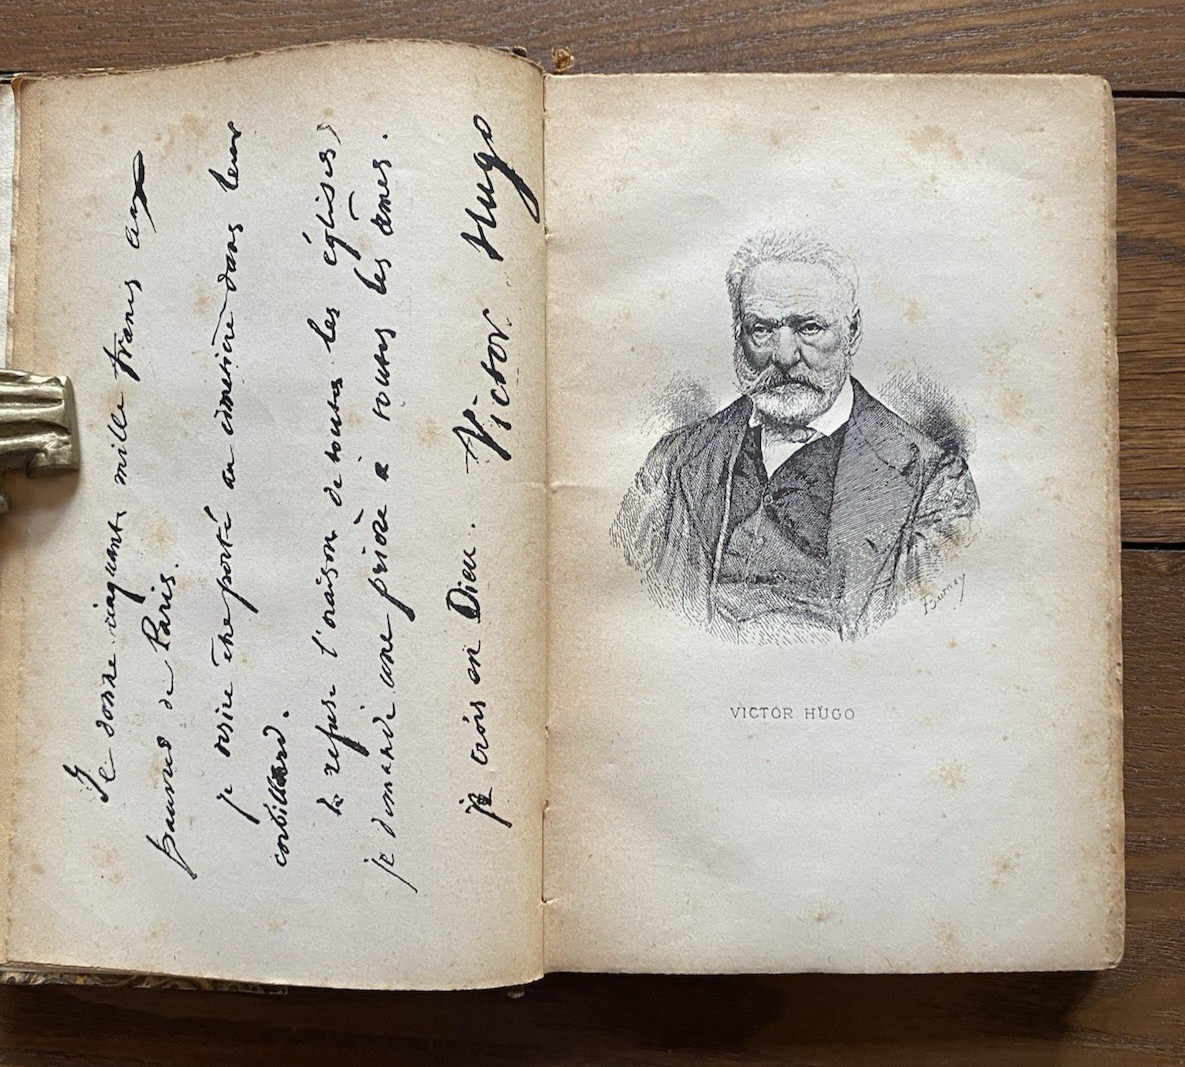 Je donne cinquante mille francs aux
pauvres de Paris.
je désire être porté au cimetière dans leur
corbillard.
Je refuse l'oraison de toutes les églises,
je demande une prière à toutes les âmes.
je crois en Dieu. Victor Hugo
VICTOR HUGO